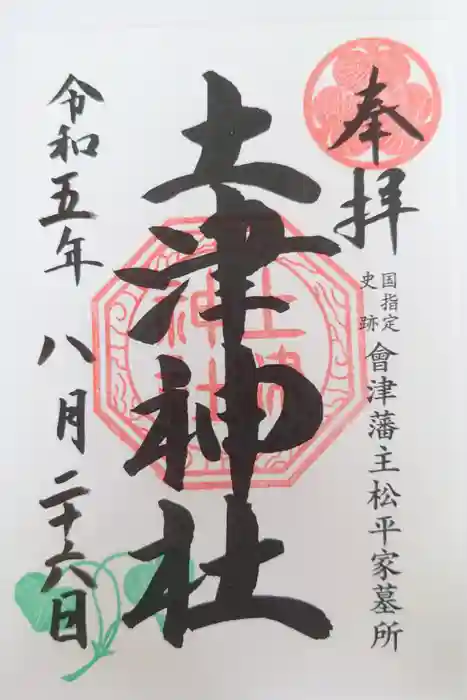 奉拝
国指定
史跡
會津藩主松平家墓所
土津神社
土津
神社
令和五年八月二十六日